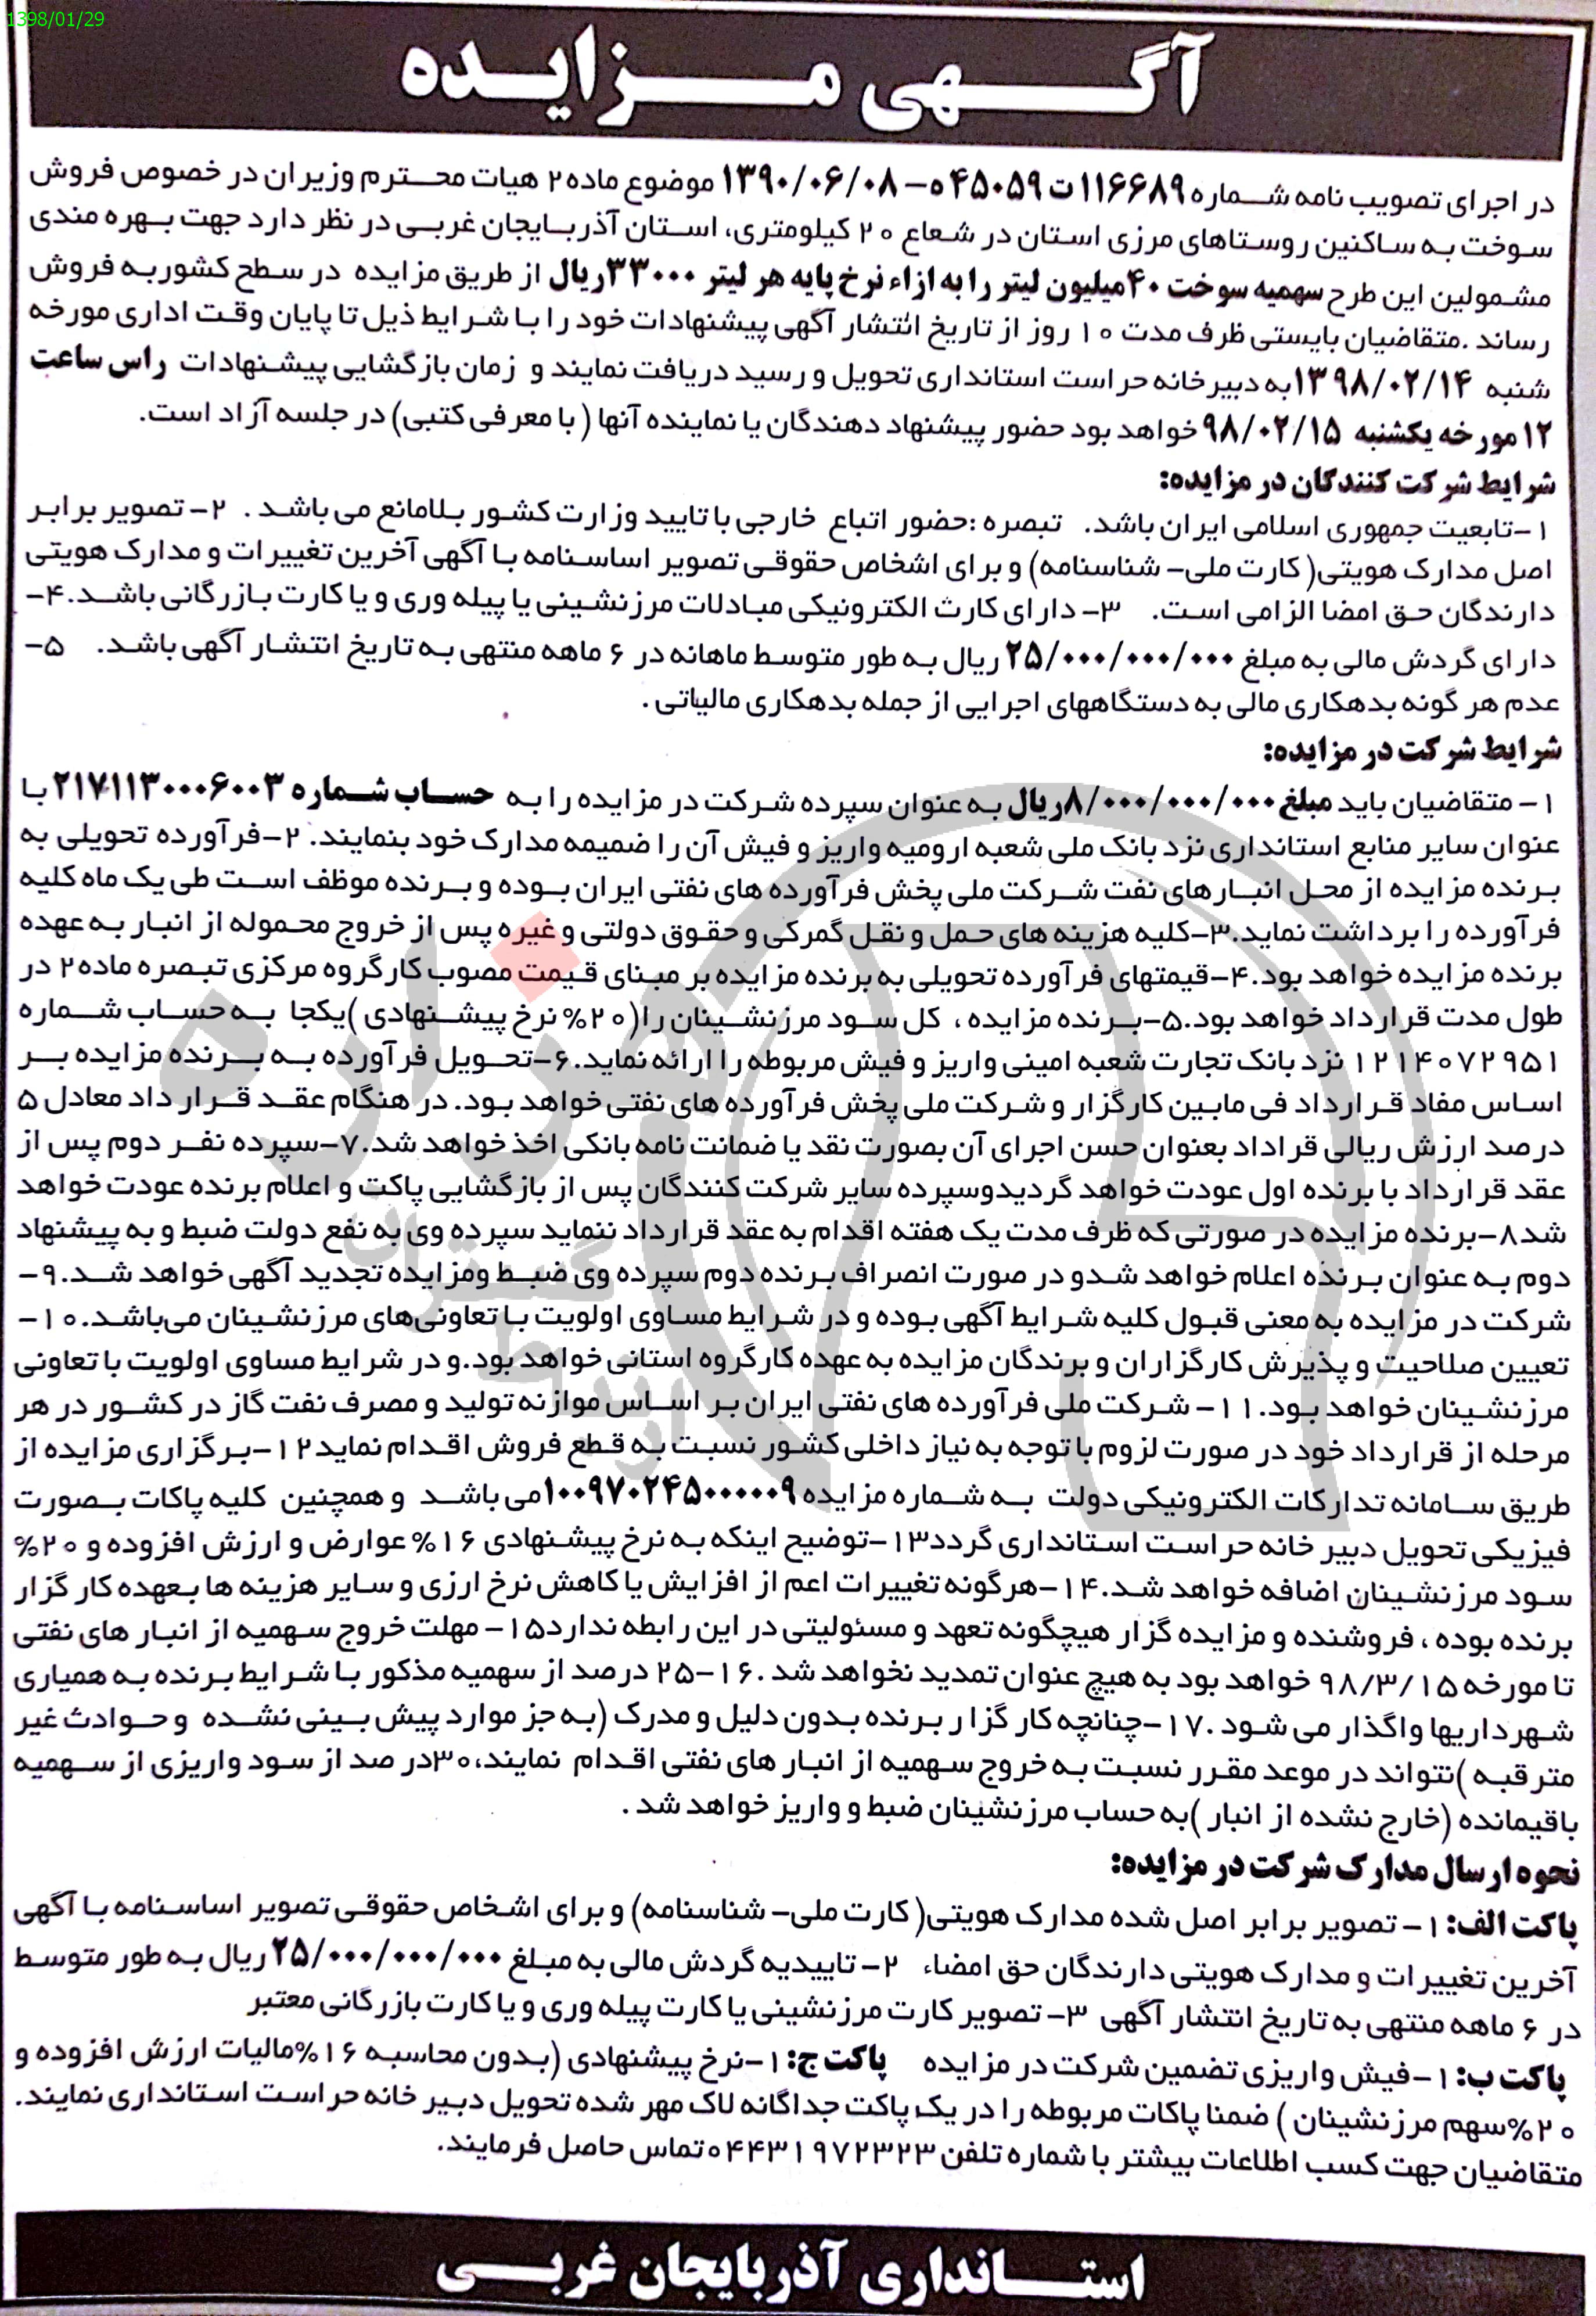 1398/01/29
آگهی مزایده
در اجرای تصویب نامه شماره ۱۱۶۶۸۹ ت ۴۵۰۵۹ ه- ۱۳۹۰/۰۶/۰۸ موضوع ماده ۲ هیات محترم وزیران در خصوص فروش
سوخت به ساکنین روستاهای مرزی استان در شعاع ۲۰ کیلومتری، استان آذربایجان غربی در نظر دارد جهت بهره مندی
مشمولین این طرح سهمیه سوخت ۴۰ میلیون لیتر را به ازاء نرخ پایه هر لیتر ۳۳۰۰۰ ریال از طریق مزایده در سطح کشور به فروش
رساند .متقاضیان بایستی ظرف مدت ۱۰ روز از تاریخ انتشار آگهی پیشنهادات خود را با شرایط ذیل تا پایان وقت اداری مورخه
شنبه ۱۳۹۸/۰۲/۱۴ به دبیرخانه حراست استانداری تحویل و رسید دریافت نمایند و زمان بازگشایی پیشنهادات راس ساعت
۱۲ مورخه یکشنبه ۹۸/۰۲/۱۵ خواهد بود حضور پیشنهاد دهندگان یا نماینده آنها (با معرفی کتبی) در جلسه آزاد است.
شرایط شرکت کنندگان در مزایده:
۱-تابعیت جمهوری اسلامی ایران باشد. تبصره :حضور اتباع خارجی با تایید وزارت کشور بلامانع می باشد . ۲- تصویر برابر
اصل مدارک هویتی( کارت ملی- شناسنامه) و برای اشخاص حقوقی تصویر اساسنامه با آگهی آخرین تغییرات و مدارک هویتی
دارندگان حق امضا الزامی است. ۳- دارای کارت الکترونیکی مبادلات مرزنشینی یا پیله وری و یا کارت بازرگانی باشد.۴-
دارای گردش مالی به مبلغ ۲۵/۰۰۰/۰۰۰/۰۰۰ ریال به طور متوسط ماهانه در ۶ ماهه منتهی به تاریخ انتشار آگهی باشد. ۵-
عدم هر گونه بدهکاری مالی به دستگاههای اجرایی از جمله بدهکاری مالیاتی .
شرایط شرکت در مزایده:
۱- متقاضیان باید مبلغ ۸/۰۰۰/۰۰۰/۰۰۰ ریال به عنوان سپرده شرکت در مزایده را به حساب شماره ۲۱۷۱۱۳۰۰۰۶۰۰۳ با
عنوان سایر منابع استانداری نزد بانک ملی شعبه ارومیه واریز و فیش آن را ضمیمه مدارک خود بنمایند. ۲-فرآورده تحویلی به
برنده مزایده از محل انبارهای نفت شرکت ملی پخش فرآورده های نفتی ایران بوده و برنده موظف است طی یک ماه کلیه
فرآورده را برداشت نماید.۳-کلیه هزینه های حمل و نقل گمرکی و حقوق دولتی و غیره پس از خروج محموله از انبار به عهده
برنده مزایده خواهد بود.۴-قیمتهای فرآورده تحویلی به برنده مزایده بر مبنای قیمت مصوب کارگروه مرکزی تبصره ماده ۲ در
طول مدت قرارداد خواهد بود.۵-برنده مزایده ، کل سود مرزنشینان را(۲۰% نرخ پیشنهادی )یکجا به حساب شماره
۱۲۱۴۰۷۲۹۵۱ نزد بانک تجارت شعبه امینی واریز و فیش مربوطه را ارائه نماید.۶-تحویل فرآورده به برنده مزایده بر
اساس مفاد قرارداد فی مابین کارگزار و شرکت ملی پخش فرآورده های نفتی خواهد بود. در هنگام عقد قرارداد معادل ۵
درصد ارزش ریالی قراداد بعنوان حسن اجرای آن بصورت نقد یا ضمانت نامه بانکی اخذ خواهد شد.۷-سپرده نفر دوم پس از
عقد قرارداد با برنده اول عودت خواهد گردیدوسپرده سایر شرکت کنندگان پس از بازگشایی پاکت و اعلام برنده عودت خواهد
شد۸-برنده مزایده در صورتی که ظرف مدت یک هفته اقدام به عقد قرارداد ننماید سپرده وی به نفع دولت ضبط و به پیشنهاد
دوم به عنوان برنده اعلام خواهد شدو در صورت انصراف برنده دوم سپرده وی ضبط ومزایده تجدید آگهی خواهد شد.۹-
شرکت در مزایده به معنی قبول کلیه شرایط آگهی بوده و در شرایط مساوی اولویت با تعاونی‌های مرزنشینان می‌باشد.۱۰-
تعیین صلاحیت و پذیرش کارگزاران و برندگان مزایده به عهده کارگروه استانی خواهد بود.و در شرایط مساوی اولویت با تعاونی
مرزنشینان خواهد بود.۱۱- شرکت ملی فرآورده های نفتی ایران بر اساس موازنه تولید و مصرف نفت گاز در کشور در هر
مرحله از قرارداد خود در صورت لزوم با توجه به نیاز داخلی کشور نسبت به قطع فروش اقدام نماید۱۲-برگزاری مزایده از
طریق سامانه تدارکات الکترونیکی دولت به شماره مزایده ۱۰۰۹۷۰۲۴۵۰۰۰۰۰۹ می باشد و همچنین کلیه پاکات بصورت
فیزیکی تحویل دبیر خانه حراست استانداری گردد۱۳-توضیح اینکه به نرخ پیشنهادی ۱۶% عوارض و ارزش افزوده و ۲۰%
سود مرزنشینان اضافه خواهد شد.۱۴-هرگونه تغییرات اعم از افزایش یا کاهش نرخ ارزی و سایر هزینه ها بعهده کار گزار
برنده بوده ، فروشنده و مزایده گزار هیچگونه تعهد و مسئولیتی در این رابطه ندارد۱۵- مهلت خروج سهمیه از انبار های نفتی
تا مورخه ۹۸/۳/۱۵ خواهد بود به هیچ عنوان تمدید نخواهد شد .۱۶-۲۵ درصد از سهمیه مذکور با شرایط برنده به همیاری
شهرداریها واگذار می شود .۱۷-چنانچه کار گزار برنده بدون دلیل و مدرک (به جز موارد پیش بینی نشده و حوادث غیر
مترقبه )نتواند در موعد مقرر نسبت به خروج سهمیه از انبار های نفتی اقدام نمایند،۳۰در صد از سود واریزی از سهمیه
باقیمانده (خارج نشده از انبار )به حساب مرزنشینان ضبط و واریز خواهد شد .
نحوه ارسال مدارک شرکت در مزایده:
پاکت الف: ۱- تصویر برابر اصل شده مدارک هویتی( کارت ملی- شناسنامه) و برای اشخاص حقوقی تصویر اساسنامه با آگهی
آخرین تغییرات و مدارک هویتی دارندگان حق امضاء ۲- تاییدیه گردش مالی به مبلغ ۲۵/۰۰۰/۰۰۰/۰۰۰ ریال به طور متوسط
در ۶ ماهه منتهی به تاریخ انتشار آگهی ۳- تصویر کارت مرزنشینی یا کارت پیله وری و یا کارت بازرگانی معتبر
پاکت ب: ۱-فیش واریزی تضمین شرکت در مزایده پاکت ج: ۱-نرخ پیشنهادی (بدون محاسبه ۱۶%مالیات ارزش افزوده و
۲۰%سهم مرزنشینان ) ضمنا پاکات مربوطه را در یک پاکت جداگانه لاک مهر شده تحویل دبیر خانه حراست استانداری نمایند.
متقاضیان جهت کسب اطلاعات بیشتر با شماره تلفن ۰۴۴۳۱۹۷۲۳۲۳ تماس حاصل فرمایند.
استانداری آذربایجان غربی
هزاره